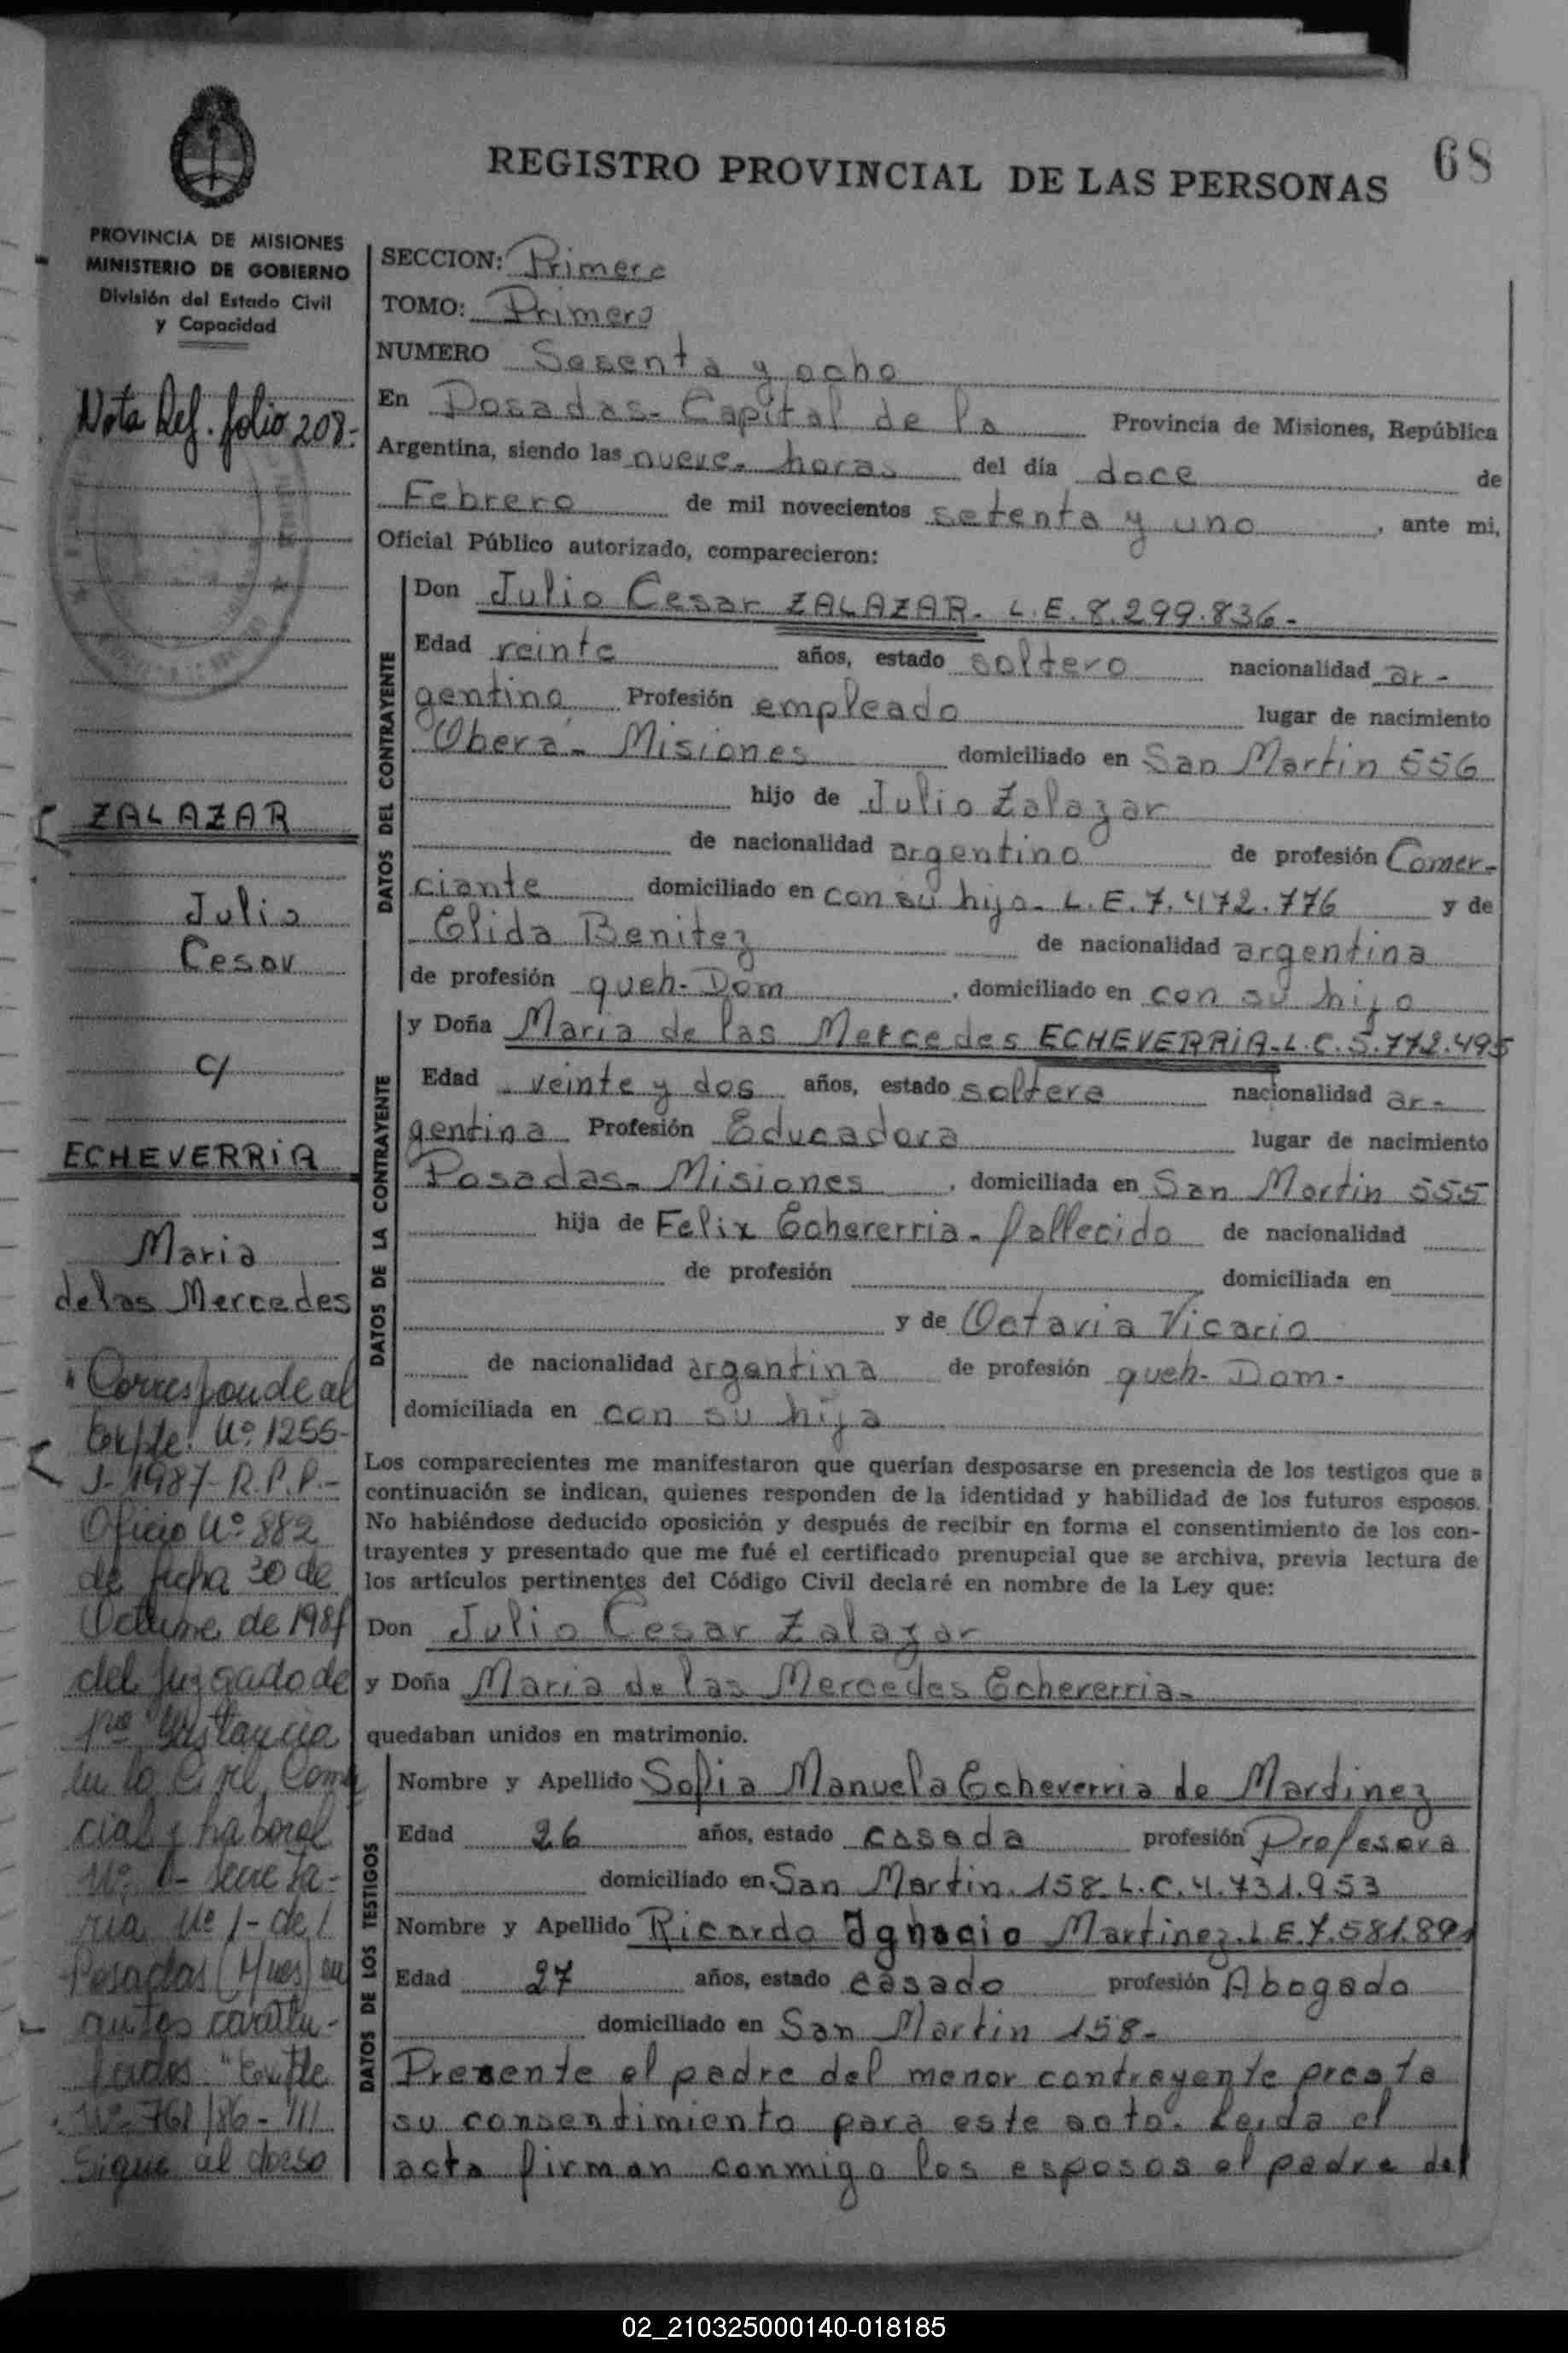 REGISTRO PROVINCIAL DE LAS PERSONAS
68
PROVINCIA DE MISIONES
MINISTERIO DE GOBIERNO
División del Estado Civil
y Capacidad
Nota Ref. folio 208.-
ZALAZAR
Julio
Cesar
c/
ECHEVERRIA
Maria
de las Mercedes
"Corresponde al
Expte. Nº 1255-
J-1987-R.P.P.-
Oficio Nº 882
de fecha 30 de
Octubre de 1987
del Juzgado de
1ra Instancia
en lo Civil, Comer
cial y Laboral
Nº 1- Secreta-
ria Nº 1- de
Posadas (Mnes) en
autos caratu-
lados "Expte
Nº 761/86- ///
Sigue al dorso
SECCION: Primera
TOMO: Primero
NUMERO Sesenta y ocho
En Posadas- Capital de la Provincia de Misiones, República
Argentina, siendo las nueve- horas del día doce de
Febrero de mil novecientos setenta y uno, ante mi,
Oficial Público autorizado, comparecieron:
DATOS DEL CONTRAYENTE
Don Julio Cesar ZALAZAR- L.E. 8.299.836-
Edad veinte años, estado soltero nacionalidad ar-
gentino Profesión empleado lugar de nacimiento
Oberá- Misiones domiciliado en San Martin 556
hijo de Julio Zalazar
de nacionalidad argentino de profesión Comer-
ciante domiciliado en con su hijo- L.E. 7.472.776 y de
Elida Benitez de nacionalidad argentina
de profesión queh- Dom, domiciliado en con su hijo
DATOS DE LA CONTRAYENTE
y Doña Maria de las Mercedes ECHEVERRIA- L.C. 5.772.495
Edad veinte y dos años, estado soltera nacionalidad ar-
gentina Profesión Educadora lugar de nacimiento
Posadas- Misiones, domiciliada en San Martin 555
hija de Felix Echeverria- fallecido de nacionalidad
de profesión domiciliada en
y de Octavia Vicario
de nacionalidad argentina de profesión queh- Dom-
domiciliada en con su hija
Los comparecientes me manifestaron que querían desposarse en presencia de los testigos que a
continuación se indican, quienes responden de la identidad y habilidad de los futuros esposos.
No habiéndose deducido oposición y después de recibir en forma el consentimiento de los con-
trayentes y presentado que me fué el certificado prenupcial que se archiva, previa lectura de
los artículos pertinentes del Código Civil declaré en nombre de la Ley que:
Don Julio Cesar Zalazar
y Doña Maria de las Mercedes Echeverria-
quedaban unidos en matrimonio.
DATOS DE LOS TESTIGOS
Nombre y Apellido Sofia Manuela Echeverria de Martinez
Edad 26 años, estado casada profesión Profesora
domiciliado en San Martin. 158 L.C. 4.731.953
Nombre y Apellido Ricardo Ignacio Martinez- L.E. 7.581.891
Edad 27 años, estado casado profesión Abogado
domiciliado en San Martin 158-
Presente el padre del menor contrayente presta
su consentimiento para este acto. Leida el
acta firman conmigo los esposos el padre del
02_210325000140-018185